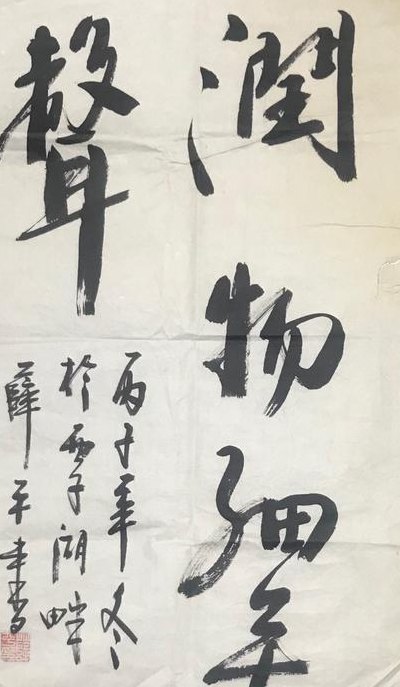 潤物細無
聲
丙子年冬
於西子湖畔
薛平書